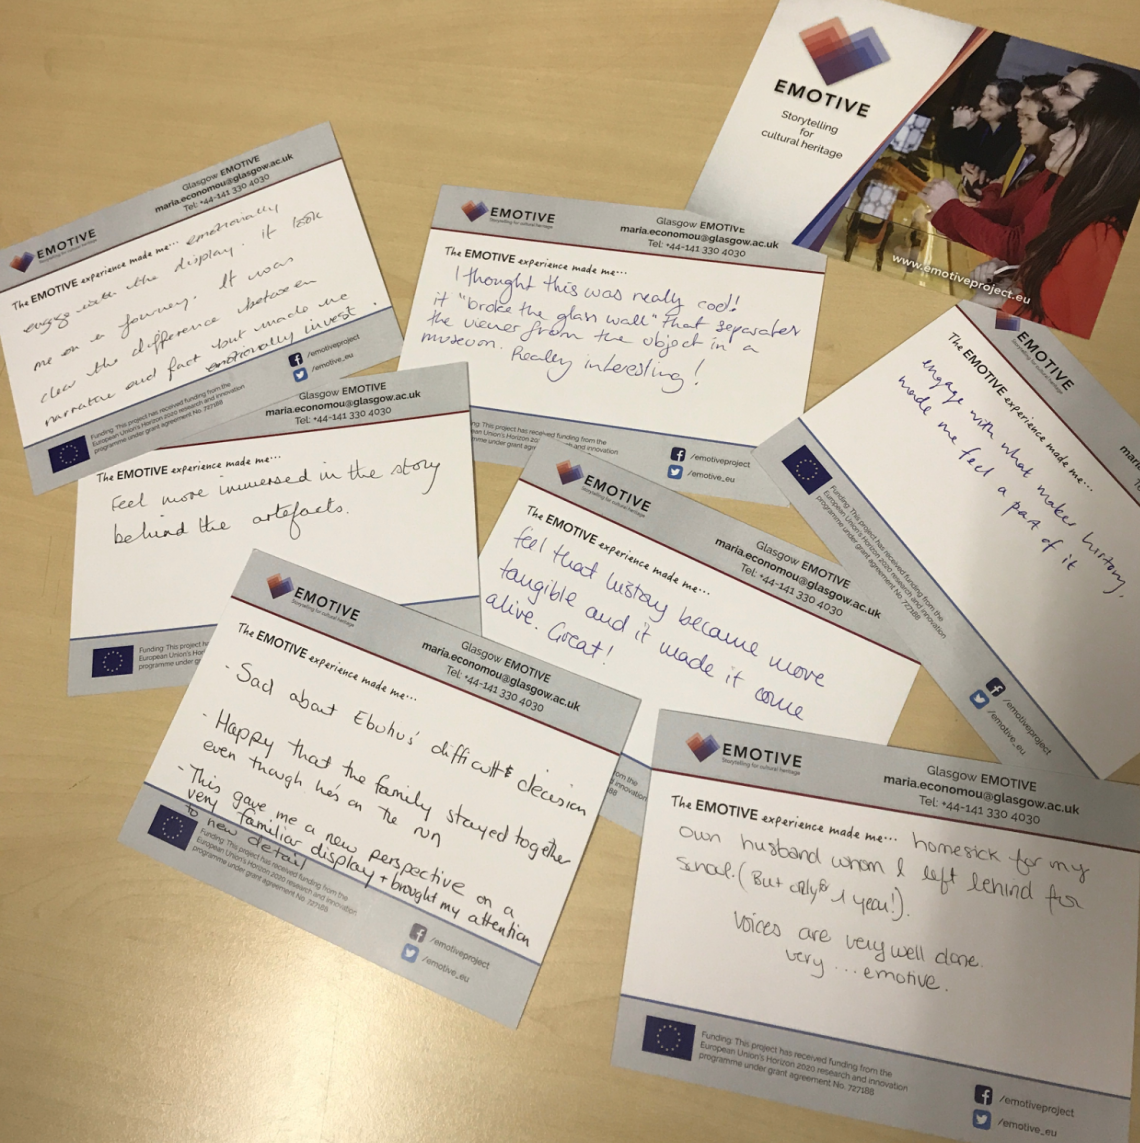 EMOTIVE
Storytelling
for
cultural heritage
www.emotiveproject.eu
EMOTIVE
Storytelling for cultural heritage
Glasgow EMOTIVE
maria.economou@glasgow.ac.uk
Tel: +44-141 330 4030
The EMOTIVE experience made me... emotionally
engage with the display. it took
me on a journey. It was
clear the difference between
narrative and fact but made me
emotionally invest.
Funding: This project has received funding from the
European Union's Horizon 2020 research and innovation
programme under grant agreement No. 727188
/emotiveproject
/emotive_eu
EMOTIVE
Storytelling for cultural heritage
Glasgow EMOTIVE
maria.economou@glasgow.ac.uk
Tel: +44-141 330 4030
The EMOTIVE experience made me...
I thought this was really cool!
it "broke the glass wall" that separates
the viewer from the object in a
museum. Really interesting!
ng: This project has received funding from the
ean Union's Horizon 2020 research and innovation
mme under grant agre
/emotiveproject
/emotive_eu
EMOTIVE
maria
Tel
The EMOTIVE experience made me...
engage with what makes history,
made me feel a part of it
Funding: This project has received funding from the
European Union's Horizon 2020 research and innovation
programme under grant agreement No. 727188
/emotiveproject
/emotive_eu
Glasgow EMOTIVE
maria.economou@glasgow.ac.uk
Tel: +44-141 330 4030
The EMOTIVE experience made me...
Feel more immersed in the story
behind the artefacts.
Funding: This project h
European Union's Hori
programme under g
EMOTIVE
Storytelling for cultural heritage
Glasgow EMOTIVE
maria.economou@glasgow.ac.uk
Tel: +44-141 330 4030
The EMOTIVE experience made me...
feel that history became more
tangible and it made it come
alive. Great!
om the
innovation
EMOTIVE
Storytelling for cultural heritage
Glasgow EMOTIVE
maria.economou@glasgow.ac.uk
Tel: +44-141 330 4030
The EMOTIVE experience made me...
- Sad about Ebuhus' difficult decision
- Happy that the family stayed together
even though he's on the run
- This gave me a new perspective on a
very familiar display + brought my attention
to new detail
Funding: This project has received funding from the
European Union's Horizon 2020 research and innovation
programme under grant agreement No. 727188
/emotiveproject
/emotive_eu
EMOTIVE
Storytelling for cultural heritage
Glasgow EMOTIVE
maria.economou@glasgow.ac.uk
Tel: +44-141 330 4030
The EMOTIVE experience made me... homesick for my
own husband whom I left behind for
school. (But only 1 year!).
Voices are very well done.
very ... emotive.
Funding: This project has received funding from the
European Union's Horizon 2020 research and innovation
programme under grant agreement No. 727188
/emotiveproject
/emotive_eu